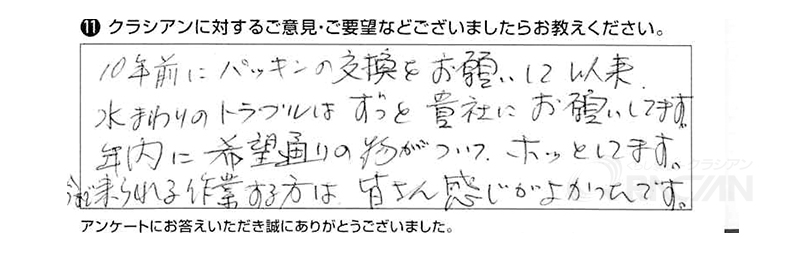 ⑪ クラシアンに対するご意見・ご要望などございましたらお教えください。
10年前にパッキンの交換をお願いして以来、
水まわりのトラブルはずっと貴社にお願いしてます。
年内に希望通りの物がついて、ホッとしてます。
今まで来られれる作業する方は、皆さん感じがよかったです。
クラシアン
アンケートにお答えいただき誠にありがとうございました。